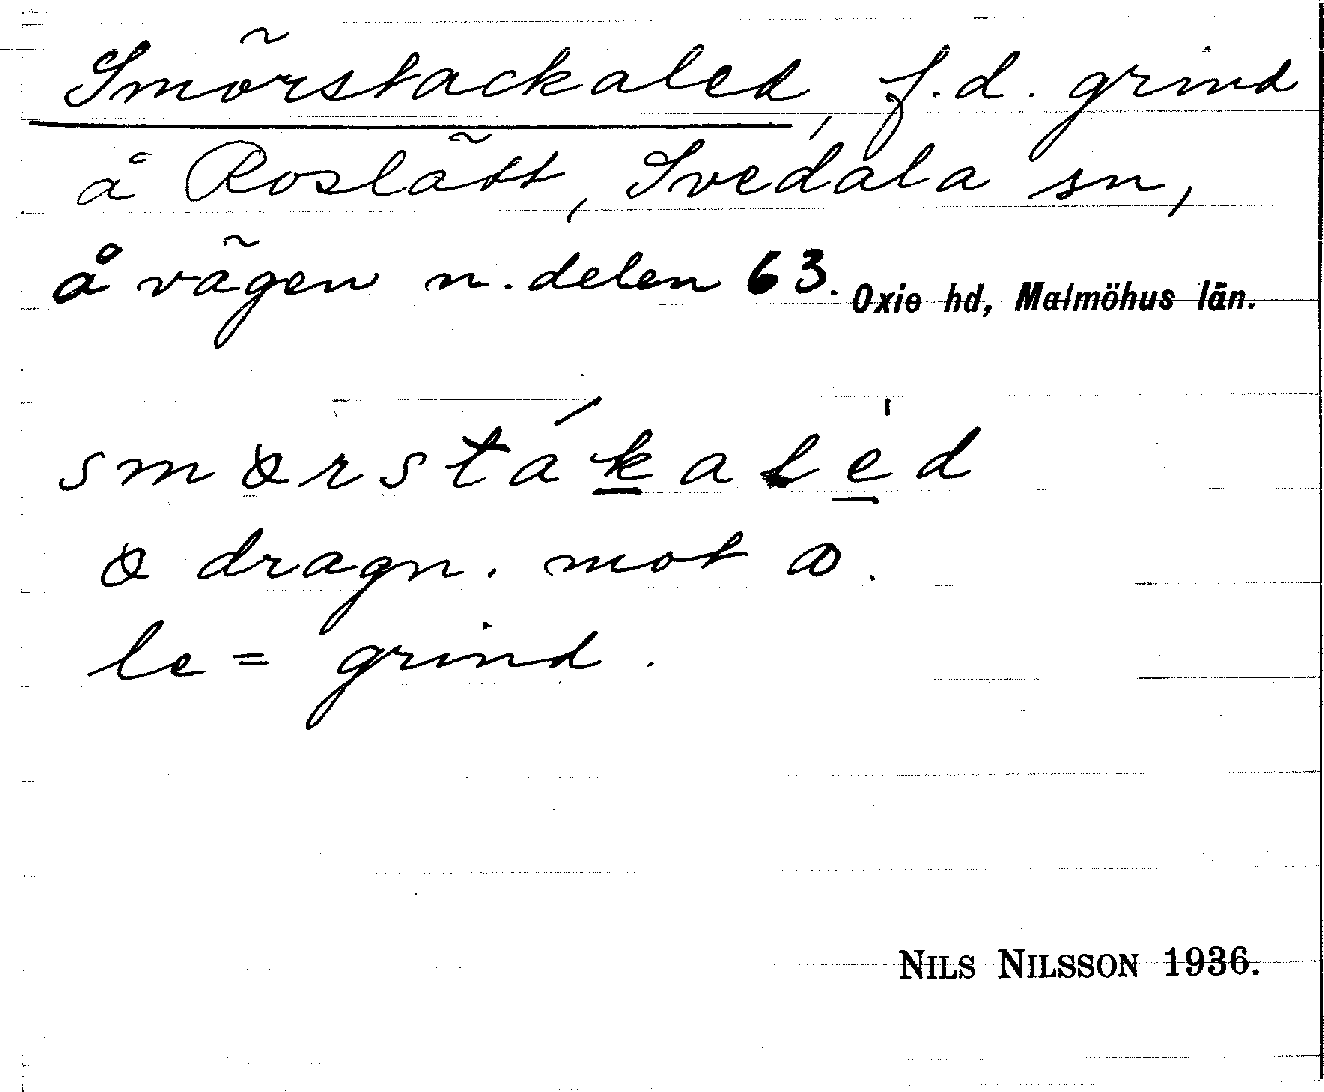 Smörstackaled, f.d. grind
å Roslätt, Svedala sn,
å vägen n. delen 63. Oxie hd, Malmöhus län.
smørstákalèd
ø dragn. mot ꝏ.
le = grind.
NILS NILSSON 1936.